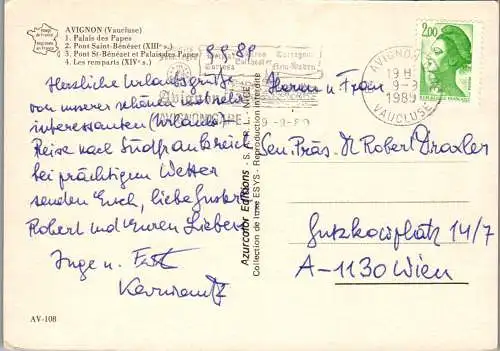 AVIGNON (Vaucluse)
1. Palais des Papes
2. Pont Saint-Bénézet (XIIIe s.)
3. Pont St-Bénézet et Palais des Papes
4. Les remparts (XIVe s.)
9.9.89
Herzliche Urlaubsgrüße
von unserer schönen und sehr
interessanten (Urlaubs)-
Reise nach Südfrankreich
bei prächtigem Wetter
senden Euch, liebe
Robert und Euren Lieben
Inge u.
AV-108
Azurcolor Editions - S.E.P.R.L. NICE
Collection de luxe ESYS - Reproduction interdite
AVIGNON
19 H
9-9
1989
VAUCLUSE
2,00
Herrn u. Frau
Sen. Präs. Robert Draxler
Gutzkowplatz 14/7
A-1130 Wien